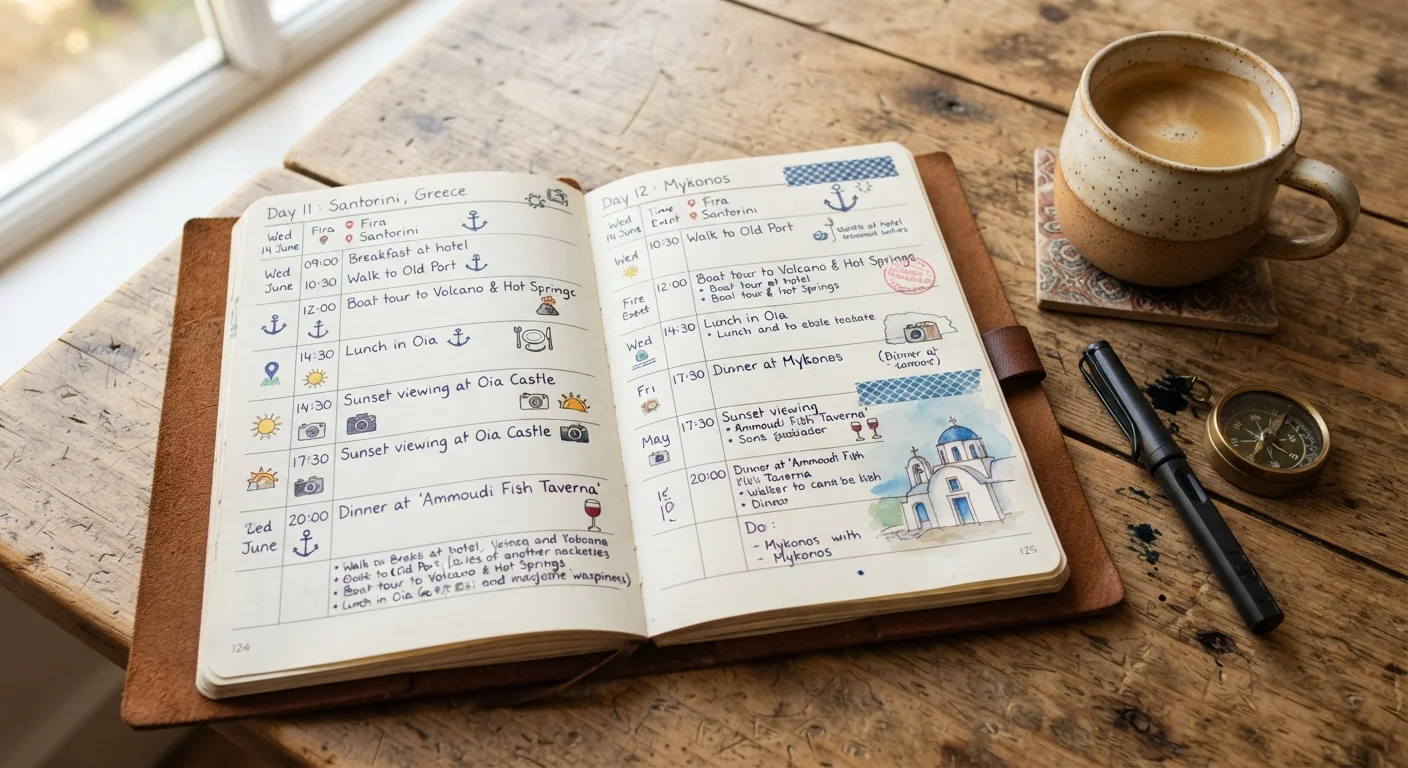 Day 11 : Santorini, Greece
Wed 14 June Fira Fira
Santorini
Wed June 09:00 Breakfast at hotel
10:30 Walk to Old Port
12:00 Boat tour to Volcano & Hot Springs
14:30 Lunch in Oia
14:30 Sunset viewing at Oia Castle
17:30 Sunset viewing at Oia Castle
June 20:00 Dinner at 'Ammoudi Fish Taverna'
• Walk as at hotel, and
• to Old Port, of another
• Boat tour to Volcano & Hot Springs
• Lunch in Oia and
124
Day 12 : Mykonos
Wed 14 June Fira
Santorini
Wed 10:30 Walk to Old Port
of hotel
12:00 Boat tour to Volcano & Hot Springs
• Boat tour at hotel
• Boat tour & Hot Springs
Wed 14:30 Lunch in Oia
• Lunch and to
Fri 17:30 Dunner at Mykonos
(Dinner at
May 17:30 Sunset viewing
• 'Ammoudi Fish Taverna'
• Sons
20:00 Dinner at 'Ammoudi Fish
Taverna
• Walker to
• Dinner
Do :
- Mykonos with
- Mykonos
125